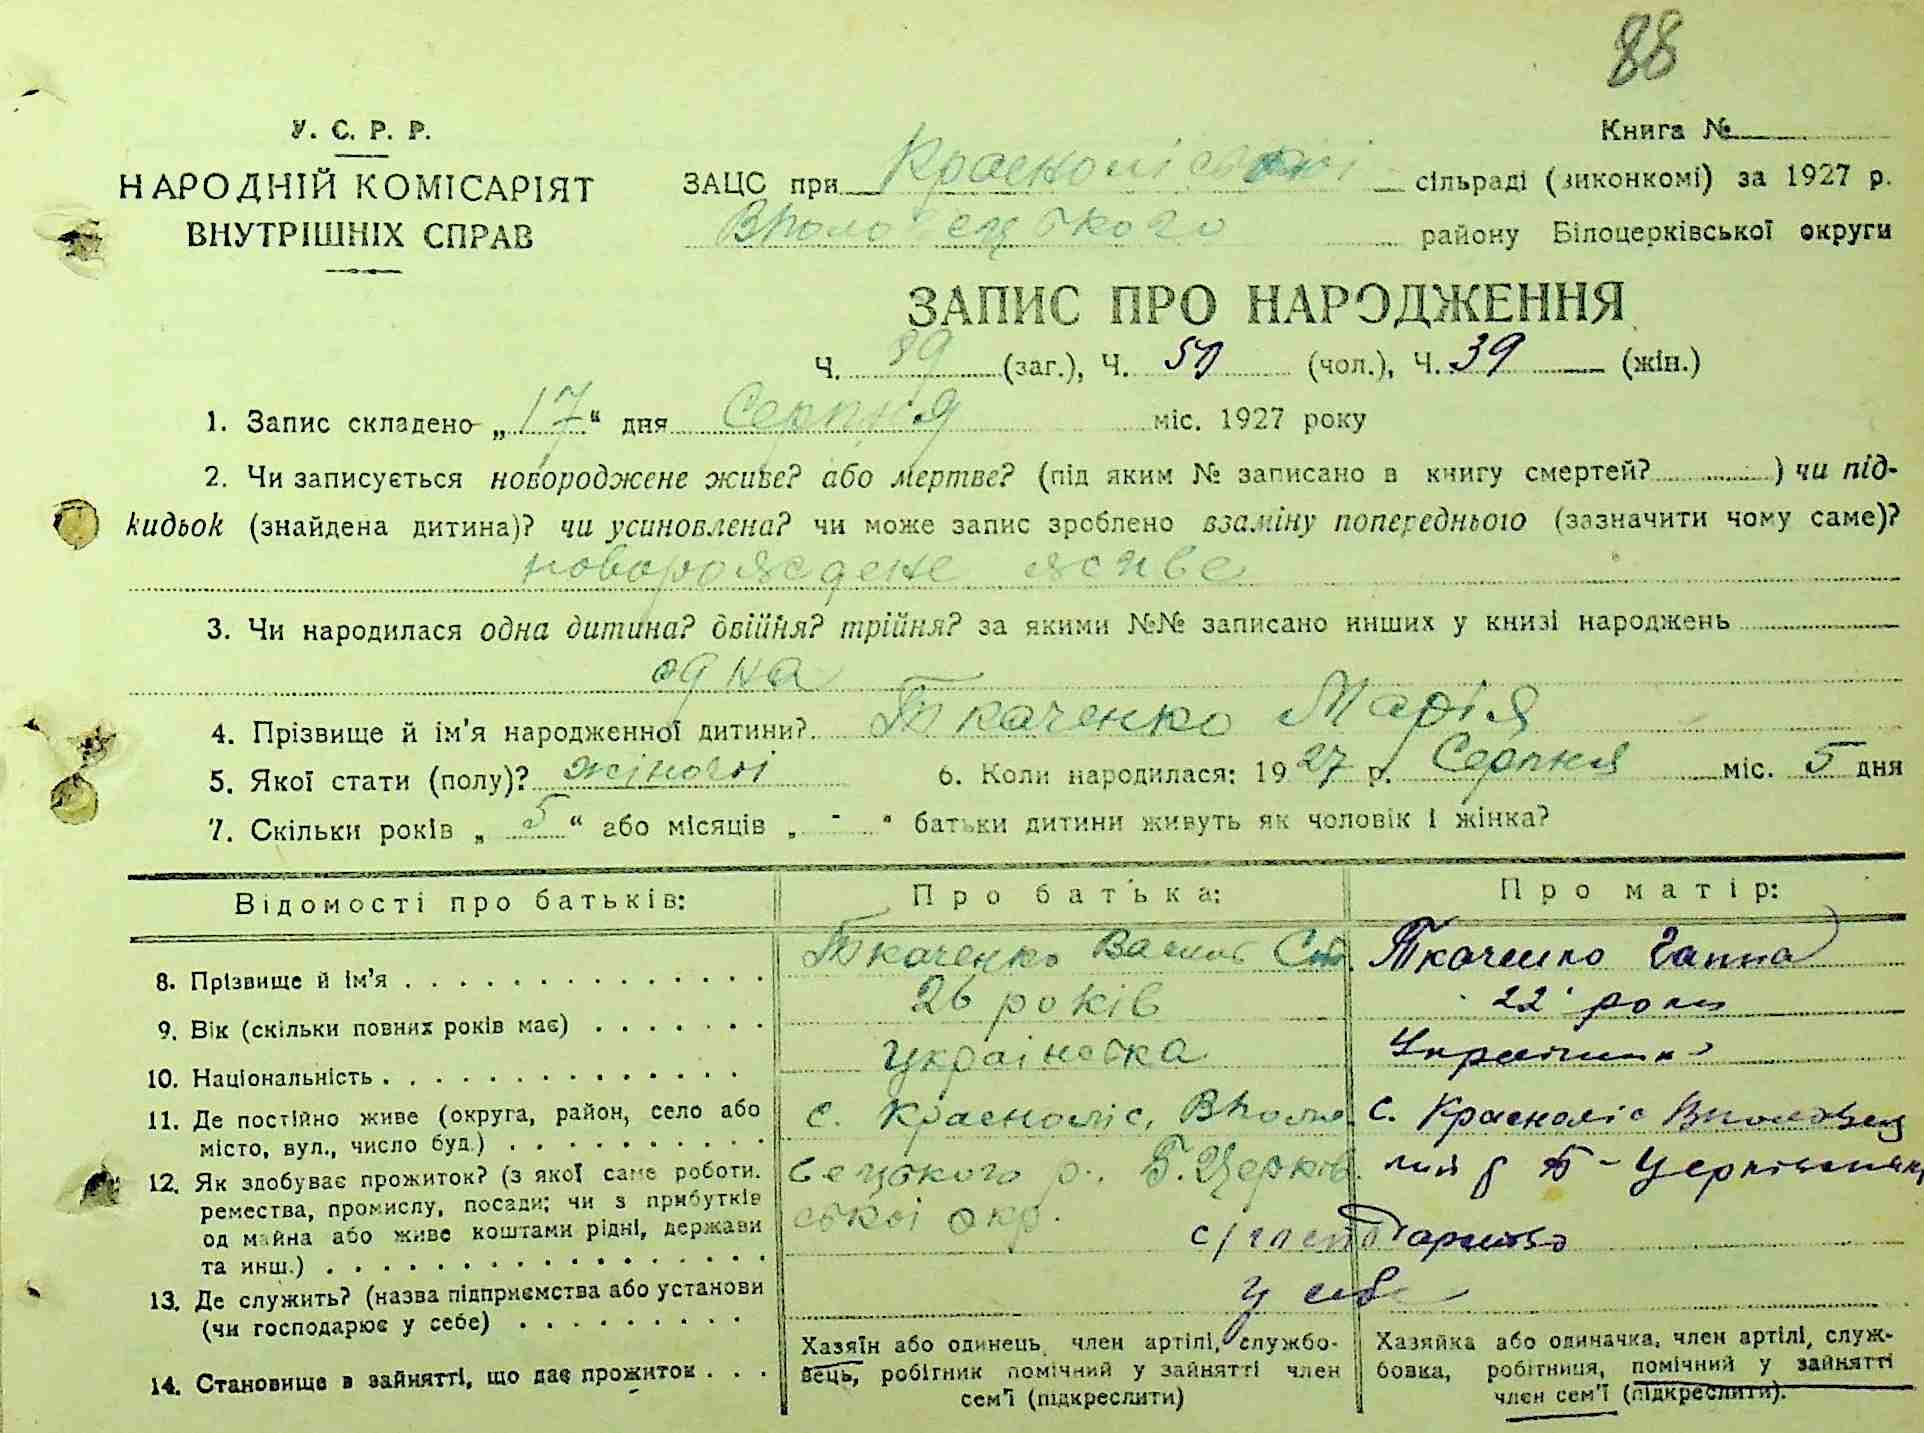 88
У. С. Р. Р.
Книга №
НАРОДНІЙ КОМІСАРІЯТ
ВНУТРІШНІХ СПРАВ
ЗАЦС при сільраді (виконкомі) за 1927 р.
району Білоцерківської округи
ЗАПИС ПРО НАРОДЖЕННЯ
Ч. 89 (заг.), Ч. 50 (чол.), Ч. 39 (жін.)
1. Запис складено „17“ дня Серпня міс. 1927 року
2. Чи записується новороджене живе? або мертве? (під яким № записано в книгу смертей? ) чи під-
кидьок (знайдена дитина)? чи усиновлена? чи може запис зроблено взаміну попереднього (зазначити чому саме)?
новорождене живе
3. Чи народилася одна дитина? двійня? трійня? за якими №№ записано инших у книзі народжень
одна
4. Прізвище й ім'я народженної дитини? Ткаченко Марія
5. Якої стати (полу)? жіночої 6. Коли народилася: 1927 р. Серпня міс. 5 дня
7. Скільки років „ 5 “ або місяців „ - “ батьки дитини живуть як чоловік і жінка?
Відомості про батьків: Про батька: Про матір:
8. Прізвище й ім'я Ткаченко Василь Ткаченко Ганна
9. Вік (скільки повних років має) 26 років 22 роки
10. Національність українська
11. Де постійно живе (округа, район, село або
місто, вул., число буд.)
с. Красноліс, с. Красноліс
р. Б. Церків
ської окр.
12. Як здобуває прожиток? (з якої саме роботи.
ремества, промислу, посади; чи з прибутків
од майна або живе коштами рідні, держави
та инш.)
с/господарство
13. Де служить? (назва підприємства або установи
(чи господарює у себе)
у себе
14. Становище в зайнятті, що дає прожиток
Хазяїн або одинець, член артілі, службо-
вець, робігник помічний у зайнятті член
сем'ї (підкреслити)
Хазяйка або одиначка, член артілі, служ-
бовка, робітниця, помічний у зайнятті
член сем'ї (підкреслити).